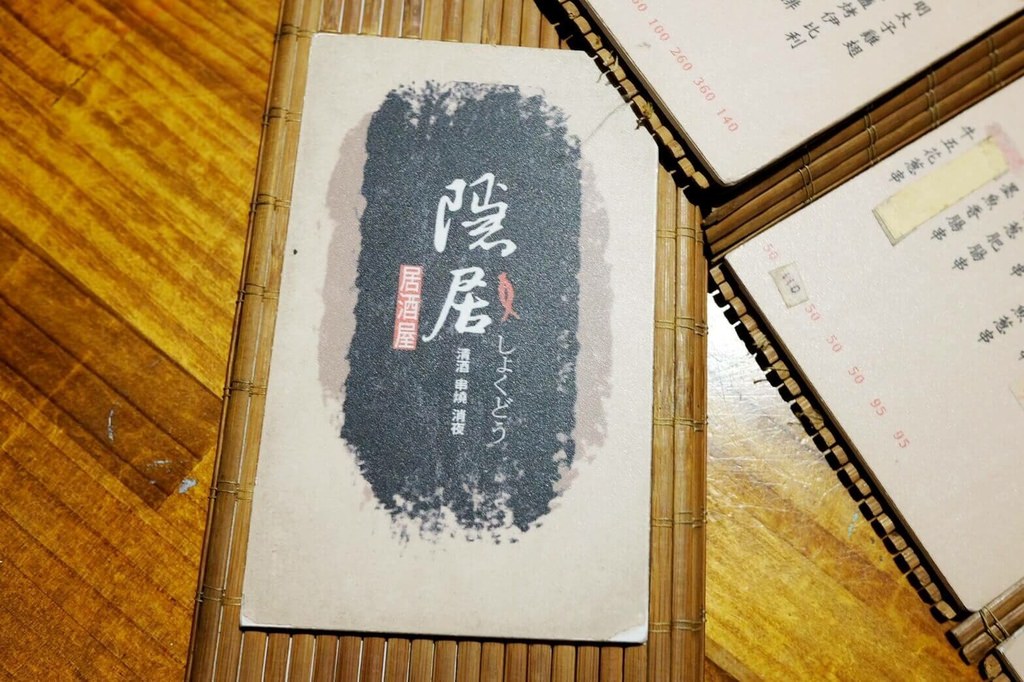 隱居
居酒屋
しょくどう
清酒 串燒 消夜
明太子雞翅
伊比利
100 260 360 140
牛五花蔥串
墨魚香腸串
蔥肥腸串
魚蔥串
50 50 50 50 95 95